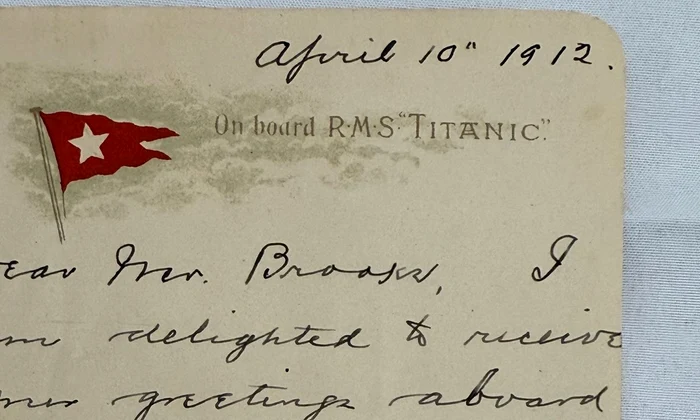 April 10" 1912.
On board R·M·S "TITANIC".
ear Mr. Brooks, I
m delighted to receive
our greetings aboard